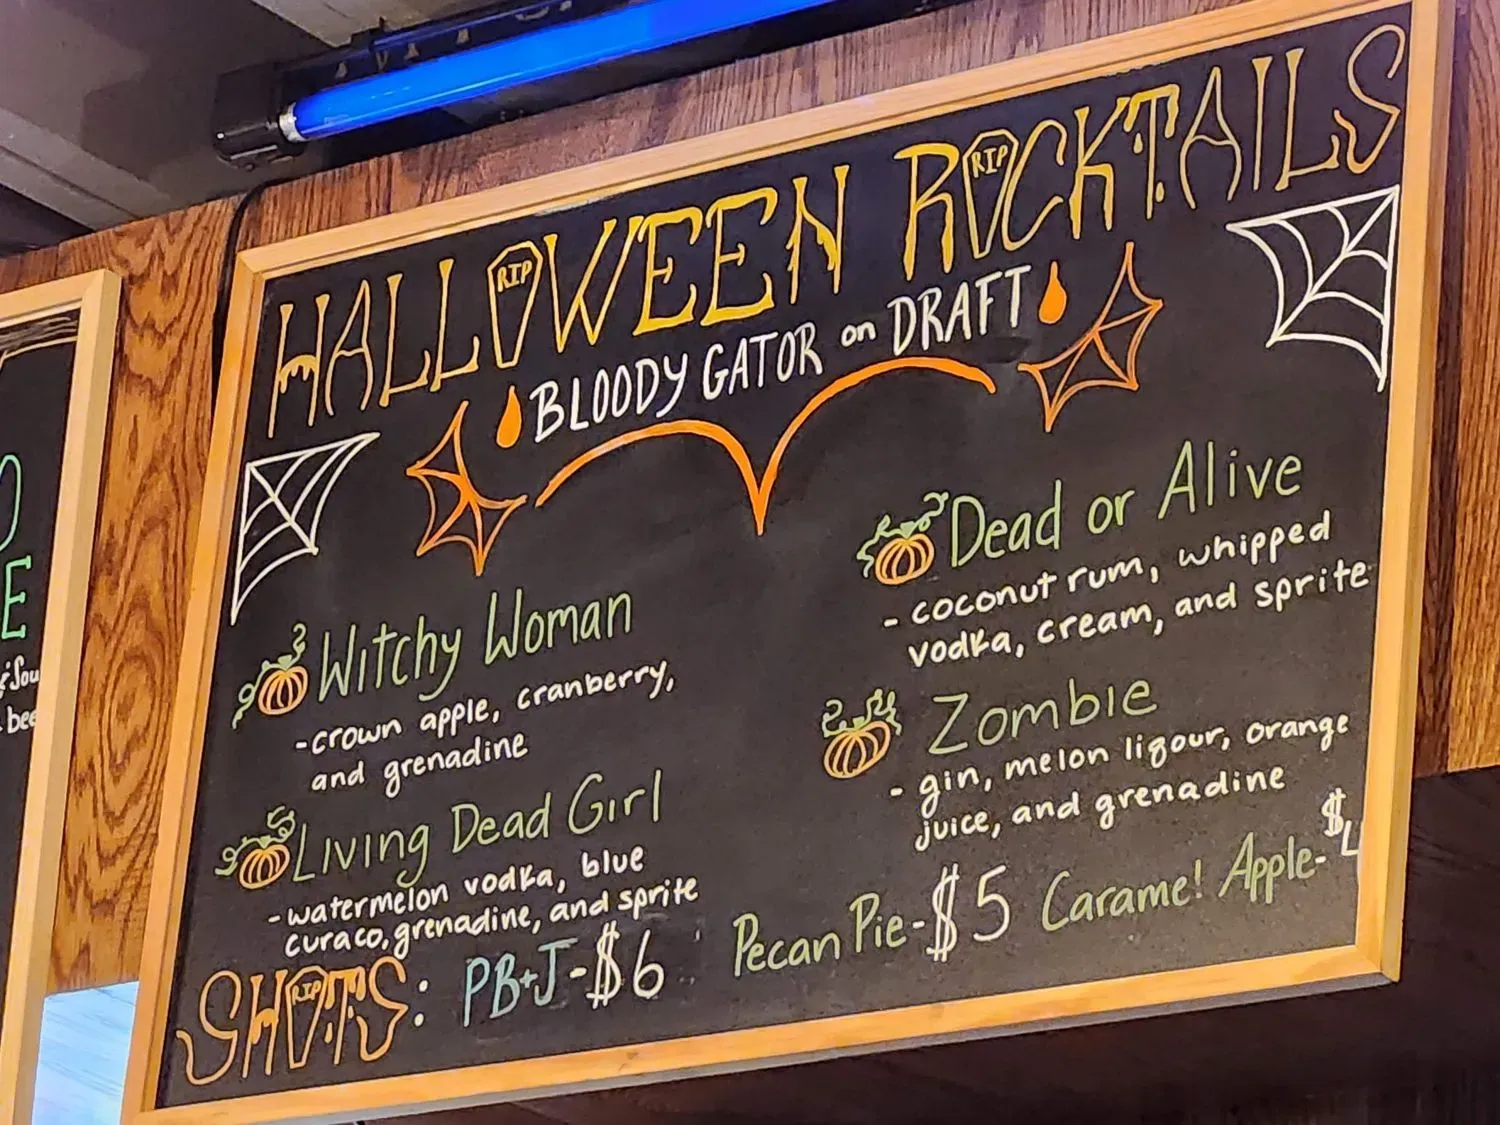 HALLOWEEN ROCKTAILS
RIP
RIP
BLOODY GATOR on DRAFT
Witchy Woman
-crown apple, cranberry,
and grenadine
Living Dead Girl
-watermelon vodka, blue
curaco, grenadine, and sprite
Dead or Alive
- coconut rum, whipped
vodka, cream, and sprite
Zombie
- gin, melon liqour, orange
juice, and grenadine
SHOTS: PB+J-$6 Pecan Pie-$5 Caramel Apple-$
RIP
E
bee